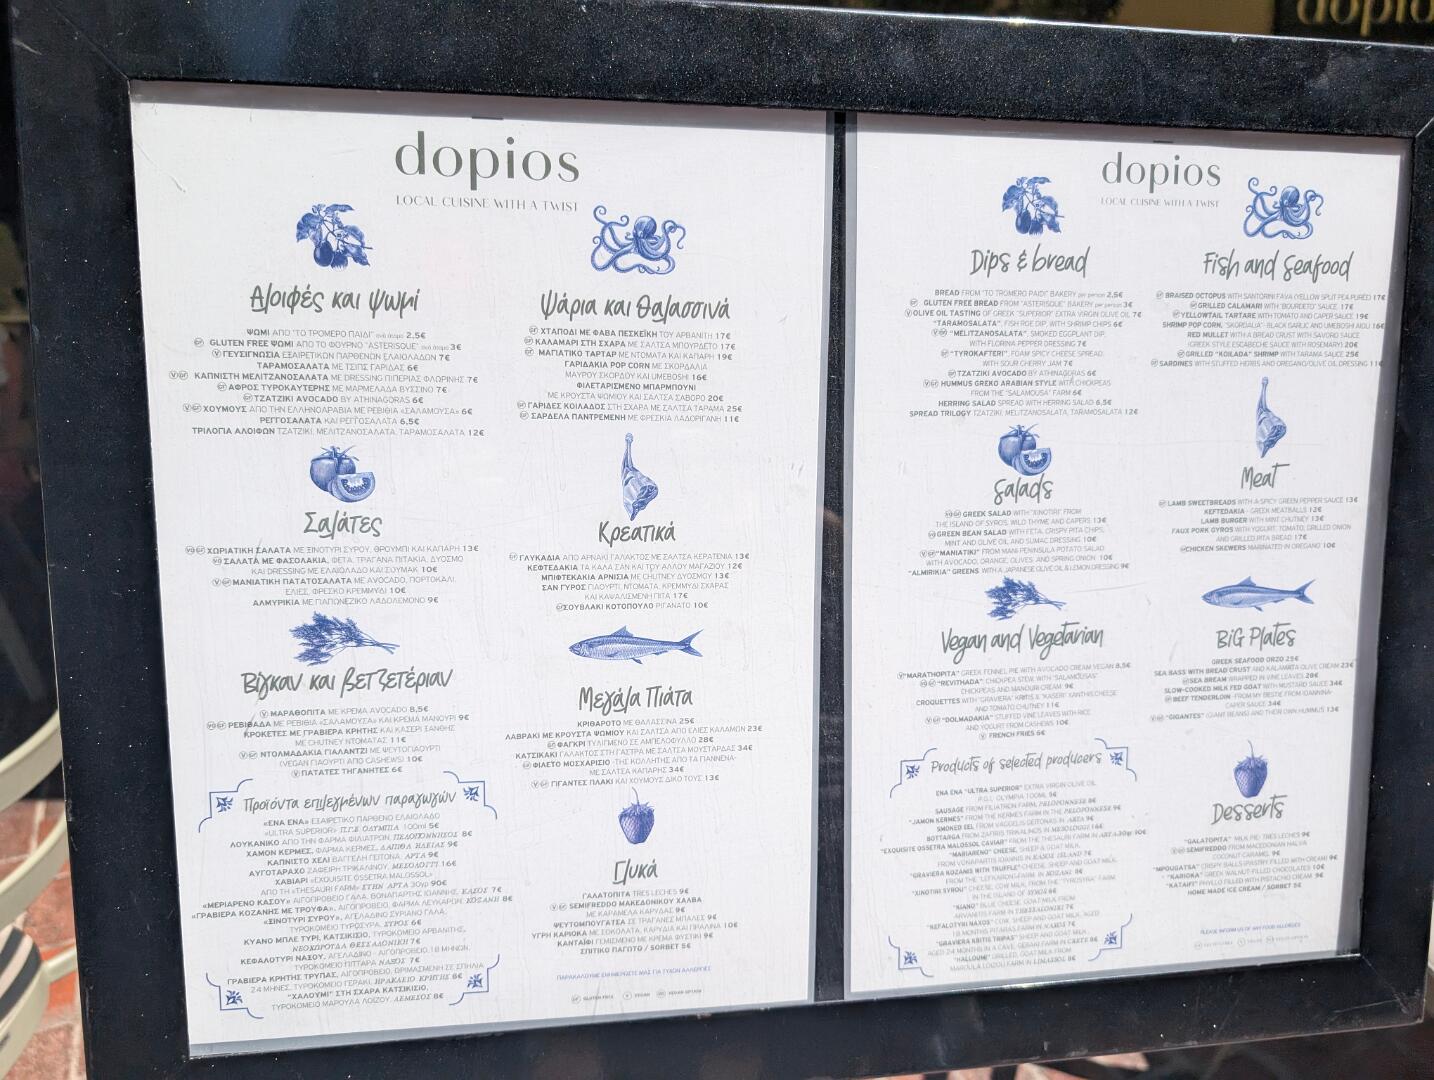 dopio
dopios
LOCAL CUISINE WITH A TWIST
Αλοιφές και ψωμί
ΨΩΜΙ ΑΠΟ "ΤΟ ΤΡΟΜΕΡΟ ΠΑΙΔΙ" ανά άτομο 2,5€
GF GLUTEN FREE ΨΩΜΙ ΑΠΟ ΤΟ ΦΟΥΡΝΟ "ASTERISQUE" ανά άτομο 3€
V ΓΕΥΣΙΓΝΩΣΙΑ ΕΞΑΙΡΕΤΙΚΩΝ ΠΑΡΘΕΝΩΝ ΕΛΑΙΟΛΑΔΩΝ 7€
ΤΑΡΑΜΟΣΑΛΑΤΑ ΜΕ ΤΣΙΠΣ ΓΑΡΙΔΑΣ 6€
V GF ΚΑΠΝΙΣΤΗ ΜΕΛΙΤΖΑΝΟΣΑΛΑΤΑ ΜΕ DRESSING ΠΙΠΕΡΙΑΣ ΦΛΩΡΙΝΗΣ 7€
GF ΑΦΡΟΣ ΤΥΡΟΚΑΥΤΕΡΗΣ ΜΕ ΜΑΡΜΕΛΑΔΑ ΒΥΣΣΙΝΟ 7€
GF TZATZIKI AVOCADO BY ATHINAGORAS 6€
V GF ΧΟΥΜΟΥΣ ΑΠΟ ΤΗΝ ΕΛΛΗΝΟΑΡΑΒΙΑ ΜΕ ΡΕΒΙΘΙΑ «ΣΑΛΑΜΟΥΣΑ» 6€
ΡΕΓΓΟΣΑΛΑΤΑ ΚΑΙ ΡΕΓΓΟΣΑΛΤΣΑ 6,5€
ΤΡΙΛΟΓΙΑ ΑΛΟΙΦΩΝ ΤΖΑΤΖΙΚΙ, ΜΕΛΙΤΖΑΝΟΣΑΛΑΤΑ, ΤΑΡΑΜΟΣΑΛΑΤΑ 12€
Σαλάτες
VO GF ΧΩΡΙΑΤΙΚΗ ΣΑΛΑΤΑ ΜΕ ΞΙΝΟΤΥΡΙ ΣΥΡΟΥ, ΘΡΟΥΜΠΙ ΚΑΙ ΚΑΠΑΡΗ 13€
VO ΣΑΛΑΤΑ ΜΕ ΦΑΣΟΛΑΚΙΑ, ΦΕΤΑ, ΤΡΑΓΑΝΑ ΠΙΤΑΚΙΑ, ΔΥΟΣΜΟ
ΚΑΙ DRESSING ΜΕ ΕΛΑΙΟΛΑΔΟ ΚΑΙ ΣΟΥΜΑΚ 10€
V GF ΜΑΝΙΑΤΙΚΗ ΠΑΤΑΤΟΣΑΛΑΤΑ ΜΕ AVOCADO, ΠΟΡΤΟΚΑΛΙ,
ΕΛΙΕΣ, ΦΡΕΣΚΟ ΚΡΕΜΜΥΔΙ 10€
ΑΛΜΥΡΙΚΙΑ ΜΕ ΓΙΑΠΩΝΕΖΙΚΟ ΛΑΔΟΛΕΜΟΝΟ 9€
Βίγκαν και βετζετέριαν
V ΜΑΡΑΘΟΠΙΤΑ ΜΕ ΚΡΕΜΑ AVOCADO 8,5€
VO GF ΡΕΒΙΘΑΔΑ ΜΕ ΡΕΒΙΘΙΑ «ΣΑΛΑΜΟΥΣΑ» ΚΑΙ ΚΡΕΜΑ ΜΑΝΟΥΡΙ 9€
ΚΡΟΚΕΤΕΣ ΜΕ ΓΡΑΒΙΕΡΑ ΚΡΗΤΗΣ ΚΑΙ ΚΑΣΕΡΙ ΞΑΝΘΗΣ
ΜΕ CHUTNEY ΝΤΟΜΑΤΑΣ 11€
V GF ΝΤΟΛΜΑΔΑΚΙΑ ΓΙΑΛΑΝΤΖΙ ΜΕ ΨΕΥΤΟΓΙΑΟΥΡΤΙ
(VEGAN ΓΙΑΟΥΡΤΙ ΑΠΟ CASHEWS) 10€
V ΠΑΤΑΤΕΣ ΤΗΓΑΝΗΤΕΣ 6€
Προϊόντα επιλεγμένων παραγωγών
«ΕΝΑ ΕΝΑ» ΕΞΑΙΡΕΤΙΚΟ ΠΑΡΘΕΝΟ ΕΛΑΙΟΛΑΔΟ
«ULTRA SUPERIOR» Π.Γ.Ε ΟΛΥΜΠΙΑ 100ml 5€
ΛΟΥΚΑΝΙΚΟ ΑΠΟ ΤΗΝ ΦΑΡΜΑ ΦΙΛΙΑΤΡΩΝ, ΠΕΛΟΠΟΝΝΗΣΟΣ 8€
ΧΑΜΟΝ ΚΕΡΜΕΣ, ΦΑΡΜΑ ΚΕΡΜΕΣ, ΛΑΠΙΘΑ ΗΛΕΙΑΣ 9€
ΚΑΠΝΙΣΤΟ ΧΕΛΙ ΒΑΓΓΕΛΗ ΓΕΙΤΟΝΑ, ΑΡΤΑ 9€
ΑΥΓΟΤΑΡΑΧΟ ΖΑΦΕΙΡΗ ΤΡΙΚΑΛΙΝΟΥ, ΜΕΣΟΛΟΓΓΙ 16€
ΧΑΒΙΑΡΙ «EXQUISITE OSSETRA MALOSSOL»
ΑΠΟ ΤΗ «THESAURI FARM» ΣΤΗΝ ΑΡΤΑ 30γρ 90€
«ΜΕΡΙΑΡΕΝΟ ΚΑΣΟΥ» ΑΙΓΟΠΡΟΒΕΙΟ ΓΑΛΑ, ΒΟΝΑΠΑΡΤΗΣ ΙΩΑΝΝΗΣ, ΚΑΣΟΣ 7€
«ΓΡΑΒΙΕΡΑ ΚΟΖΑΝΗΣ ΜΕ ΤΡΟΥΦΑ», ΑΙΓΟΠΡΟΒΕΙΟ, ΦΑΡΜΑ ΛΕΥΚΑΡΩΝ, ΚΟΖΑΝΗ 8€
«ΞΙΝΟΤΥΡΙ ΣΥΡΟΥ», ΑΓΕΛΑΔΙΝΟ ΣΥΡΙΑΝΟ ΓΑΛΑ,
ΤΥΡΟΚΟΜΕΙΟ ΤΥΡΟΣΥΡΑ, ΣΥΡΟΣ 6€
ΚΥΑΝΟ ΜΠΛΕ ΤΥΡΙ, ΚΑΤΣΙΚΙΣΙΟ, ΤΥΡΟΚΟΜΕΙΟ ΑΡΒΑΝΙΤΗΣ,
ΝΕΟΧΩΡΟΥΔΑ ΘΕΣΣΑΛΟΝΙΚΗ 7€
ΚΕΦΑΛΟΤΥΡΙ ΝΑΞΟΥ, ΑΓΕΛΑΔΙΝΟ - ΑΙΓΟΠΡΟΒΕΙΟ, 18 ΜΗΝΩΝ,
ΤΥΡΟΚΟΜΕΙΟ ΠΙΤΤΑΡΑ ΝΑΞΟΣ 7€
ΓΡΑΒΙΕΡΑ ΚΡΗΤΗΣ ΤΡΥΠΑΣ, ΑΙΓΟΠΡΟΒΕΙΟ, ΩΡΙΜΑΣΜΕΝΗ ΣΕ ΣΠΗΛΙΑ
24 ΜΗΝΕΣ, ΤΥΡΟΚΟΜΕΙΟ ΓΕΡΑΚΙ, ΗΡΑΚΛΕΙΟ ΚΡΗΤΗΣ 8€
"ΧΑΛΟΥΜΙ" ΣΤΗ ΣΧΑΡΑ ΚΑΤΣΙΚΙΣΙΟ,
ΤΥΡΟΚΟΜΕΙΟ ΜΑΡΟΥΛΑ ΛΟΙΖΟΥ, ΛΕΜΕΣΟΣ 8€
Ψάρια και θαλασσινά
GF ΧΤΑΠΟΔΙ ΜΕ ΦΑΒΑ ΠΕΣΚΕΪΚΗ ΤΟΥ ΑΡΒΑΝΙΤΗ 17€
GF ΚΑΛΑΜΑΡΙ ΣΤΗ ΣΧΑΡΑ ΜΕ ΣΑΛΤΣΑ ΜΠΟΥΡΔΕΤΟ 17€
GF ΜΑΓΙΑΤΙΚΟ ΤΑΡΤΑΡ ΜΕ ΝΤΟΜΑΤΑ ΚΑΙ ΚΑΠΑΡΗ 19€
ΓΑΡΙΔΑΚΙΑ POP CORN ΜΕ ΣΚΟΡΔΑΛΙΑ
ΜΑΥΡΟΥ ΣΚΟΡΔΟΥ ΚΑΙ UMEBOSHI 16€
ΦΙΛΕΤΑΡΙΣΜΕΝΟ ΜΠΑΡΜΠΟΥΝΙ
ΜΕ ΚΡΟΥΣΤΑ ΨΩΜΙΟΥ ΚΑΙ ΣΑΛΤΣΑ ΣΑΒΟΡΟ 20€
GF ΓΑΡΙΔΕΣ ΚΟΙΛΑΔΟΣ ΣΤΗ ΣΧΑΡΑ ΜΕ ΣΑΛΤΣΑ ΤΑΡΑΜΑ 25€
GF ΣΑΡΔΕΛΑ ΠΑΝΤΡΕΜΕΝΗ ΜΕ ΦΡΕΣΚΙΑ ΛΑΔΟΡΙΓΑΝΗ 11€
Κρεατικά
GF ΓΛΥΚΑΔΙΑ ΑΠΟ ΑΡΝΑΚΙ ΓΑΛΑΚΤΟΣ ΜΕ ΣΑΛΤΣΑ ΚΕΡΑΤΕΝΙΑ 13€
ΚΕΦΤΕΔΑΚΙΑ ΤΑ ΚΑΛΑ ΣΑΝ ΚΑΙ ΤΟΥ ΑΛΛΟΥ ΜΑΓΑΖΙΟΥ 12€
ΜΠΙΦΤΕΚΑΚΙΑ ΑΡΝΙΣΙΑ ΜΕ CHUTNEY ΔΥΟΣΜΟΥ 13€
ΣΑΝ ΓΥΡΟΣ ΓΙΑΟΥΡΤΙ, ΝΤΟΜΑΤΑ, ΚΡΕΜΜΥΔΙ ΣΧΑΡΑΣ
ΚΑΙ ΚΑΨΑΛΙΣΜΕΝΗ ΠΙΤΑ 17€
GF ΣΟΥΒΛΑΚΙ ΚΟΤΟΠΟΥΛΟ ΡΙΓΑΝΑΤΟ 10€
Μεγάλα Πιάτα
ΚΡΙΘΑΡΟΤΟ ΜΕ ΘΑΛΑΣΣΙΝΑ 25€
ΛΑΒΡΑΚΙ ΜΕ ΚΡΟΥΣΤΑ ΨΩΜΙΟΥ ΚΑΙ ΣΑΛΤΣΑ ΑΠΟ ΕΛΙΕΣ ΚΑΛΑΜΩΝ 23€
GF ΦΑΓΚΡΙ ΤΥΛΙΓΜΕΝΟ ΣΕ ΑΜΠΕΛΟΦΥΛΛΟ 28€
ΚΑΤΣΙΚΑΚΙ ΓΑΛΑΚΤΟΣ ΣΤΗ ΓΑΣΤΡΑ ΜΕ ΣΑΛΤΣΑ ΜΟΥΣΤΑΡΔΑΣ 34€
GF ΦΙΛΕΤΟ ΜΟΣΧΑΡΙΣΙΟ -ΤΗΣ ΚΟΛΛΗΤΗΣ ΑΠΟ ΤΑ ΓΙΑΝΝΕΝΑ-
ΜΕ ΣΑΛΤΣΑ ΚΑΠΑΡΗΣ 34€
V GF ΓΙΓΑΝΤΕΣ ΠΛΑΚΙ ΚΑΙ ΧΟΥΜΟΥΣ ΔΙΚΟ ΤΟΥΣ 13€
Γλυκά
ΓΑΛΑΤΟΠΙΤΑ TRES LECHES 9€
V GF SEMIFREDDO ΜΑΚΕΔΟΝΙΚΟΥ ΧΑΛΒΑ
ΜΕ ΚΑΡΑΜΕΛΑ ΚΑΡΥΔΑΣ 9€
ΨΕΥΤΟΜΠΟΥΓΑΤΣΑ ΣΕ ΤΡΑΓΑΝΕΣ ΜΠΑΛΕΣ 9€
ΥΓΡΗ ΚΑΡΙΟΚΑ ΜΕ ΣΟΚΟΛΑΤΑ, ΚΑΡΥΔΙΑ ΚΑΙ ΠΡΑΛΙΝΑ 10€
ΚΑΝΤΑΪΦΙ ΓΕΜΙΣΜΕΝΟ ΜΕ ΚΡΕΜΑ ΦΥΣΤΙΚΙ 9€
ΣΠΙΤΙΚΟ ΠΑΓΩΤΟ / SORBET 5€
ΠΑΡΑΚΑΛΟΥΜΕ ΕΝΗΜΕΡΩΣΤΕ ΜΑΣ ΓΙΑ ΤΥΧΟΝ ΑΛΛΕΡΓΙΕΣ
GF GLUTEN FREE V VEGAN VO VEGAN OPTION
dopios
LOCAL CUISINE WITH A TWIST
Dips & bread
BREAD FROM "TO TROMERO PAIDI" BAKERY per person 2,5€
GF GLUTEN FREE BREAD FROM "ASTERISQUE" BAKERY per person 3€
V OLIVE OIL TASTING OF GREEK "SUPERIOR" EXTRA VIRGIN OLIVE OIL 7€
"TARAMOSALATA", FISH ROE DIP, WITH SHRIMP CHIPS 6€
V GF "MELITZANOSALATA", SMOKED EGGPLANT DIP,
WITH FLORINA PEPPER DRESSING 7€
GF "TYROKAFTERI", FOAM SPICY CHEESE SPREAD,
WITH SOUR CHERRY JAM 7€
GF TZATZIKI AVOCADO BY ATHINAGORAS 6€
V GF HUMMUS GREKO ARABIAN STYLE WITH CHICKPEAS
FROM THE "SALAMOUSA" FARM 6€
HERRING SALAD SPREAD WITH HERRING SALAD 6,5€
SPREAD TRILOGY TZATZIKI, MELITZANOSALATA, TARAMOSALATA 12€
Salads
VO GF GREEK SALAD WITH "XINOTIRI" FROM
THE ISLAND OF SYROS, WILD THYME AND CAPERS 13€
VO GREEN BEAN SALAD WITH FETA, CRISPY PITA CHIPS,
MINT AND OLIVE OIL AND SUMAC DRESSING 10€
V GF "MANIATIKI" FROM MANI PENINSULA POTATO SALAD
WITH AVOCADO, ORANGE, OLIVES, AND SPRING ONION 10€
"ALMIRIKIA" GREENS WITH A JAPANESE OLIVE OIL & LEMON DRESSING 9€
Vegan and Vegetarian
V "MARATHOPITA" GREEK FENNEL PIE WITH AVOCADO CREAM VEGAN 8,5€
VO GF "REVITHADA": CHICKPEA STEW, WITH "SALAMOUSAS"
CHICKPEAS AND MANOURI CREAM 9€
CROQUETTES WITH "GRAVIERA" KRITIS & "KASERI" XANTHIS CHEESE
AND TOMATO CHUTNEY 11€
V GF "DOLMADAKIA" STUFFED VINE LEAVES WITH RICE
AND YOGURT FROM CASHEWS 10€
V FRENCH FRIES 6€
Products of selected producers
ENA ENA "ULTRA SUPERIOR" EXTRA VIRGIN OLIVE OIL
P.G.I. OLYMPIA 100ML 5€
SAUSAGE FROM FILIATRON FARM, PELOPONNESE 8€
"JAMON KERMES" FROM THE KERMES FARM IN THE PELOPONNESE 9€
SMOKED EEL FROM VAGGELIS GEITONAS IN ARTA 9€
BOTTARGA FROM ZAFIRIS TRIKALINOS IN MESOLOGGI 16€
"EXQUISITE OSSETRA MALOSSOL CAVIAR" FROM THE THESAURI FARM IN ARTA 30gr 90€
"MARIARENO" CHEESE, SHEEP & GOAT MILK,
FROM VONAPARTIS IOANNIS IN KASOS ISLAND 7€
"GRAVIERA KOZANIS WITH TRUFFLE" CHEESE, SHEEP AND GOAT MILK,
FROM THE "LEFKARON" FARM IN KOZANI 8€
"XINOTIRI SYROU" CHEESE, COW MILK, FROM THE "TYROSYRA" FARM
IN THE ISLAND OF SYROS 6€
"KIANO" BLUE CHEESE, GOAT MILK FROM
ARVANITIS FARM IN THESSALONIKI 7€
"KEFALOTYRI NAXOS" COW, SHEEP AND GOAT MILK, AGED
18 MONTHS PITARAS FARM IN NAXOS 7€
"GRAVIERA KRITIS TRIPAS" SHEEP AND GOAT MILK,
AGED 24 MONTHS IN A CAVE, GERAKI FARM IN CRETE 8€
"HALLOUMI" GRILLED, GOAT MILK, FROM
MAROULA LOIZOU FARM IN LIMASSOL 8€
Fish and Seafood
GF BRAISED OCTOPUS WITH SANTORINI FAVA (YELLOW SPLIT PEA PURÉE) 17€
GF GRILLED CALAMARI WITH "BOURDETO" SAUCE 17€
GF YELLOWTAIL TARTARE WITH TOMATO AND CAPER SAUCE 19€
SHRIMP POP CORN, "SKORDALIA" - BLACK GARLIC AND UMEBOSHI AIOLI 16€
RED MULLET WITH A BREAD CRUST WITH SAVORO SAUCE
(GREEK STYLE ESCABECHE SAUCE WITH ROSEMARY) 20€
GF GRILLED "KOILADA" SHRIMP WITH TARAMA SAUCE 25€
GF SARDINES WITH STUFFED HERBS AND OREGANO/OLIVE OIL DRESSING 11€
Meat
GF LAMB SWEETBREADS WITH A SPICY GREEN PEPPER SAUCE 13€
KEFTEDAKIA - GREEK MEATBALLS 12€
LAMB BURGER WITH MINT CHUTNEY 13€
FAUX PORK GYROS WITH YOGURT, TOMATO, GRILLED ONION
AND GRILLED PITA BREAD 17€
GF CHICKEN SKEWERS MARINATED IN OREGANO 10€
BiG Plates
GREEK SEAFOOD ORZO 25€
SEA BASS WITH BREAD CRUST AND KALAMATA OLIVE CREAM 23€
GF SEA BREAM WRAPPED IN VINE LEAVES 28€
SLOW-COOKED MILK FED GOAT WITH MUSTARD SAUCE 34€
GF BEEF TENDERLOIN -FROM MY BESTIE FROM IOANNINA-
CAPER SAUCE 34€
V GF "GIGANTES" (GIANT BEANS) AND THEIR OWN HUMMUS 13€
Desserts
"GALATOPITA" MILK PIE: TRES LECHES 9€
V GF SEMIFREDDO FROM MACEDONIAN HALVA
COCONUT CARAMEL 9€
"MPOUGATSA" CRISPY BALLS (PASTRY FILLED WITH CREAM) 9€
"KARIOKA" GREEK WALNUT-FILLED CHOCOLATES 10€
"KATAIFI" PHYLLO FILLED WITH PISTACHIO CREAM 9€
HOME MADE ICE CREAM / SORBET 5€
PLEASE INFORM US OF ANY FOOD ALLERGIES